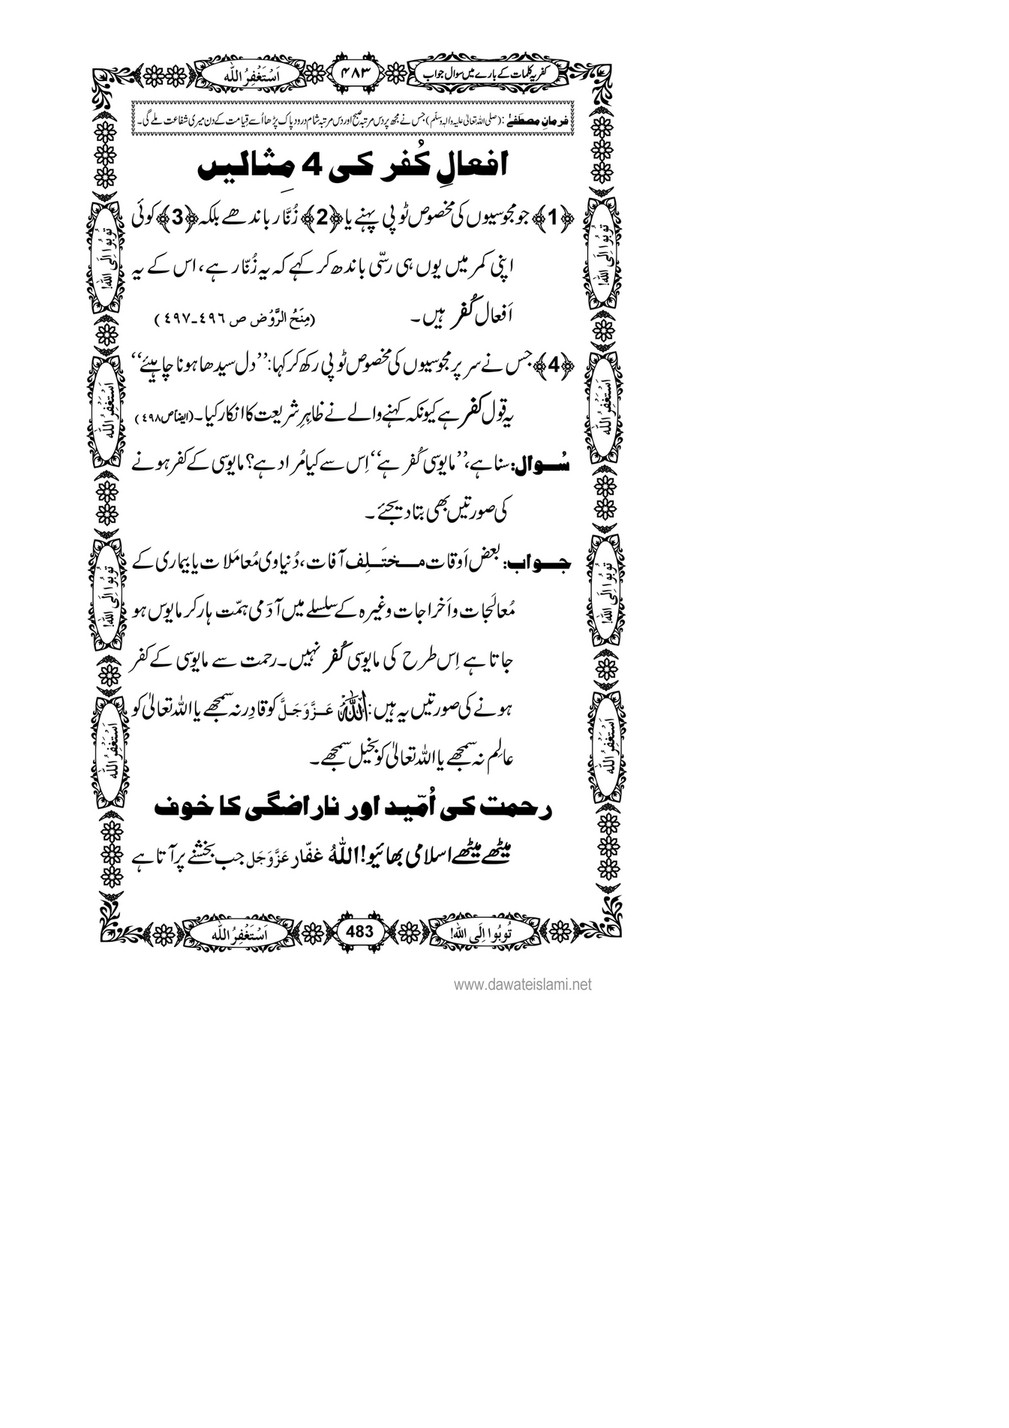 کفریہ کلمات کے بارے میں سوال جواب
۴۸۳
اَسْتَغْفِرُ اللہ
فرمانِ مصطفےٰ: (صلی اللہ تعالیٰ علیہ والہ وسلّم) جس نے مجھ پر دس مرتبہ صبح اور دس مرتبہ شام درود پاک پڑھا اُسے قِیامت کے دن میری شفاعت ملے گی۔
افعالِ کُفر کی 4 مِثالیں
﴿1﴾ جو مجوسیوں کی مخصوص ٹوپی پہنے یا ﴿2﴾ زُنَّار باندھے بلکہ ﴿3﴾ کوئی
اپنی کمر میں یوں ہی رسّی باندھ کر کہے کہ یہ زُنّار ہے، اس کے یہ
اَفعال کُفر ہیں۔ (مِنَحُ الرَّوْض ص ٤٩٦۔٤٩٧)
﴿4﴾ جس نے سر پر مجوسیوں کی مخصوص ٹوپی رکھ کر کہا: ’’دل سیدھا ہونا چاہیئے‘‘
یہ قول کفر ہے کیونکہ کہنے والے نے ظاہرِ شریعت کا انکار کیا۔ (ایضاً ص ٤٩٨)
سُوال: سنا ہے، ’’مایوسی کُفر ہے‘‘ اِس سے کیا مُراد ہے؟ مایوسی کے کفر ہونے
کی صورتیں بھی بتا دیجئے۔
جواب: بعض اَوقات مختَلِف آفات، دُنیاوی مُعامَلات یا بیماری کے
مُعالَجات و اَخراجات وغیرہ کے سلسلے میں آدَمی ہمّت ہار کر مایوس ہو
جاتا ہے اِس طرح کی مایوسی کُفر نہیں۔ رحمت سے مایوسی کے کفر
ہونے کی صورتیں یہ ہیں: اللہ عَزَّوَجَلَّ کو قادِر نہ سمجھے یا اللہ تعالیٰ کو
عالِم نہ سمجھے یا اللہ تعالیٰ کو بخیل سمجھے۔
رحمت کی اُمّید اور ناراضگی کا خوف
میٹھے میٹھے اسلامی بھائیو! اللہُ غفّار عَزَّوَجَل جب بخشنے پر آتا ہے
تُوبُوا اِلَی اللہ!
اَسْتَغْفِرُ اللہ
تُوبُوا اِلَی اللہ!
اَسْتَغْفِرُ اللہ
تُوبُوا اِلَی اللہ!
اَسْتَغْفِرُ اللہ
تُوبُوا اِلَی اللہ!
اَسْتَغْفِرُ اللہ
تُوبُوا اِلَی اللہ!
483
اَسْتَغْفِرُ اللہ
www.dawateislami.net